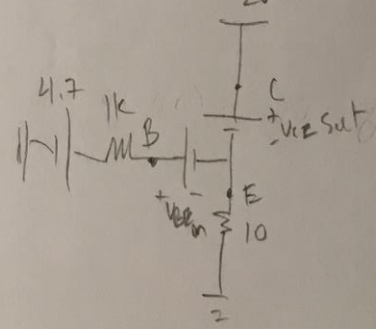 4.7
1K
B
C
+
- VCE Sat
+ VBEon -
E
10